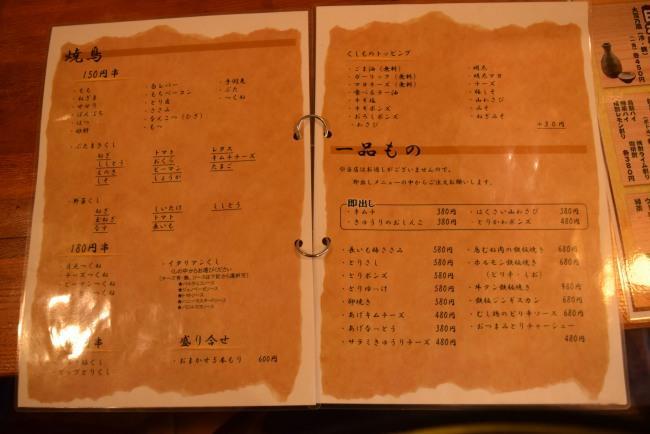 焼鳥
150円串
・もも
・ねぎま
・せせり
・ぼんぼち
・はつ
・砂肝
・白レバー
・もちベーコン
・とり皮
・ささみ
・なんこつ(ひざ)
・もつ
・手羽先
・ぶた
・つくね
・ぶたまきくし
ねぎ
ししとう
えのき
しそ
トマト
おくら
ピーマン
しょうが
レタス
キムチチーズ
たまご
・野菜くし
ねぎ
玉ねぎ
なす
しいたけ
トマト
長いも
ししとう
180円串
・月見つくね
・チーズつくね
・ピーマンつくね
・イタリアンくし
盛り合せ
・おまかせ5本もり 600円
くしものトッピング
・ごま油(無料)
・ガーリック(無料)
・マヨネーズ(無料)
・食べるラー油
・ネギ塩
・ネギポンズ
・おろしポンズ
・わさび
・明太
・明太マヨ
・チーズ
・梅しそ
・山わさび
・ネギみそ
+30円
一品もの
※当店はお通しがございませんので、
即出しメニューの中からご注文お願いします。
即出し
・キムチ 380円
・きゅうりのおしんこ 380円
・はくさい山わさび 380円
・とりかわポンズ 480円
・長いも梅ささみ 580円
・とりさし 580円
・とりポンズ 580円
・とりゆっけ 580円
・卵焼き 480円
・あげキムチチーズ 480円
・あげなっとう 480円
・サラミきゅうりチーズ 480円
・鳥むね肉の鉄板焼き 680円
・ホルモン鉄板焼き 580円
(ピリ辛・しお)
・牛タン鉄板焼き 980円
・鉄板ジンギスカン 680円
・むし鶏のピリ辛ソース 580円
・おつまみとりチャーシュー
480円
各450円
各380円
緑茶